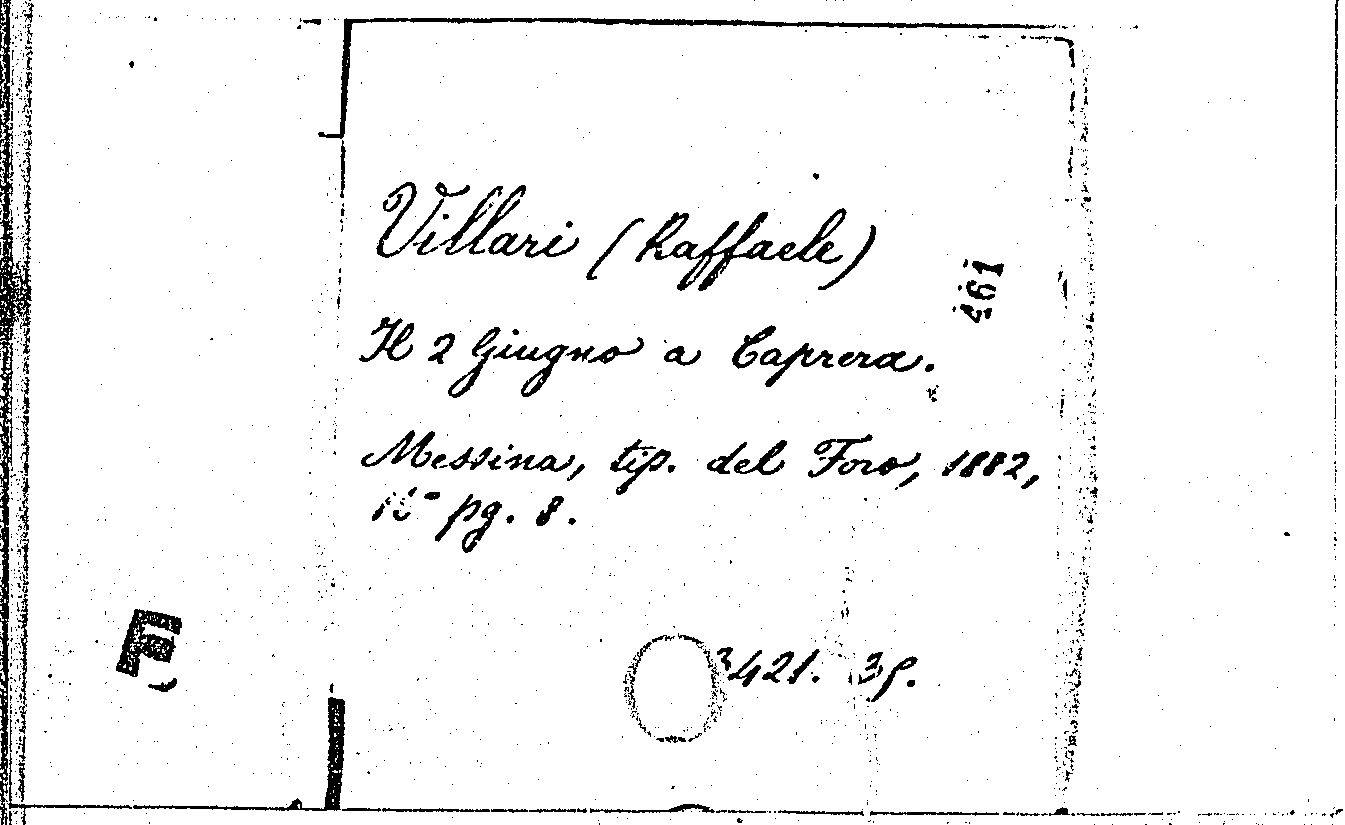 Villari (Raffaele)
461
Il 2 Giugno a Caprera.
Messina, tip. del Foro, 1882,
16° pg. 8.
3421. 35.
F